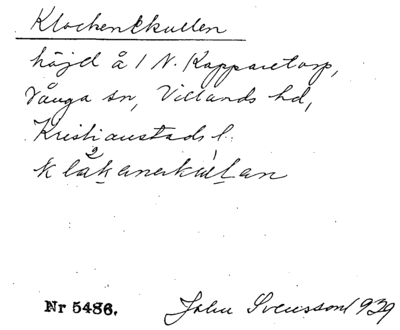 Klockenkullen
höjd å 1 N. Kopparetorp,
Vånga sn, Villands hd,
Kristianstads l.
klåkanerkullan
Nr 5486.
John Svensson 1939